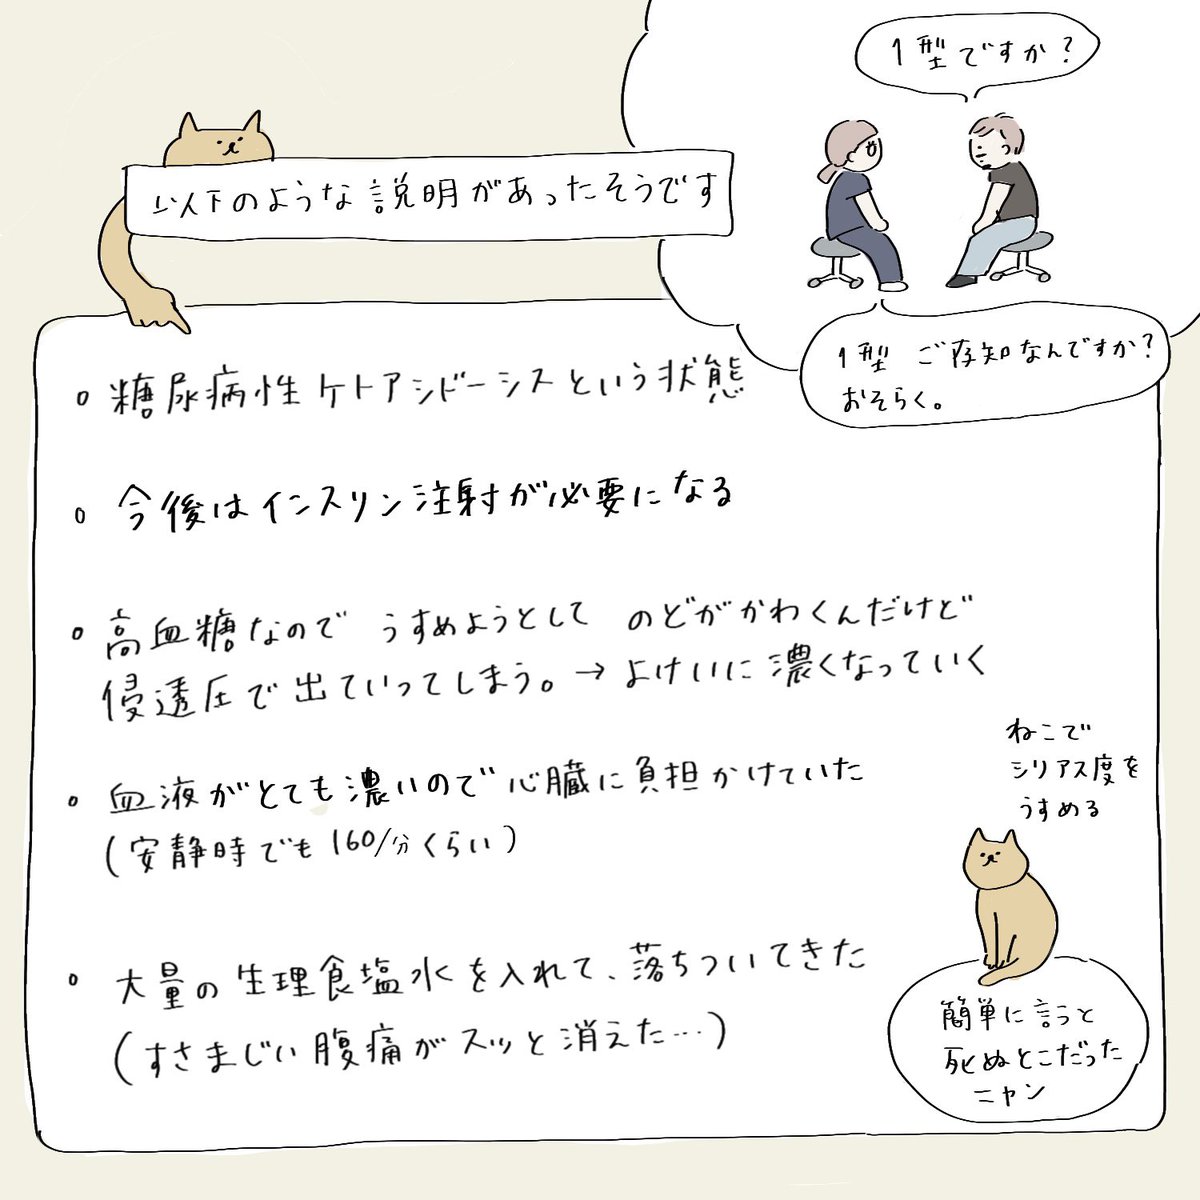 1型ですか?
以下のような説明があったそうです
1型 ご存知なんですか?
おそらく。
○ 糖尿病性ケトアシドーシスという状態
○ 今後はインスリン注射が必要になる
○ 高血糖なので うすめようとして のどがかわくんだけど
侵透圧で出ていってしまう。→よけいに濃くなっていく
○ 血液がとても濃いので心臓に負担かけていた
(安静時でも160/分くらい)
○ 大量の生理食塩水を入れて、落ちついてきた
(すさまじい腹痛がスッと消えた…)
ねこで
シリアス度を
うすめる
簡単に言うと
死ぬとこだった
ニャン